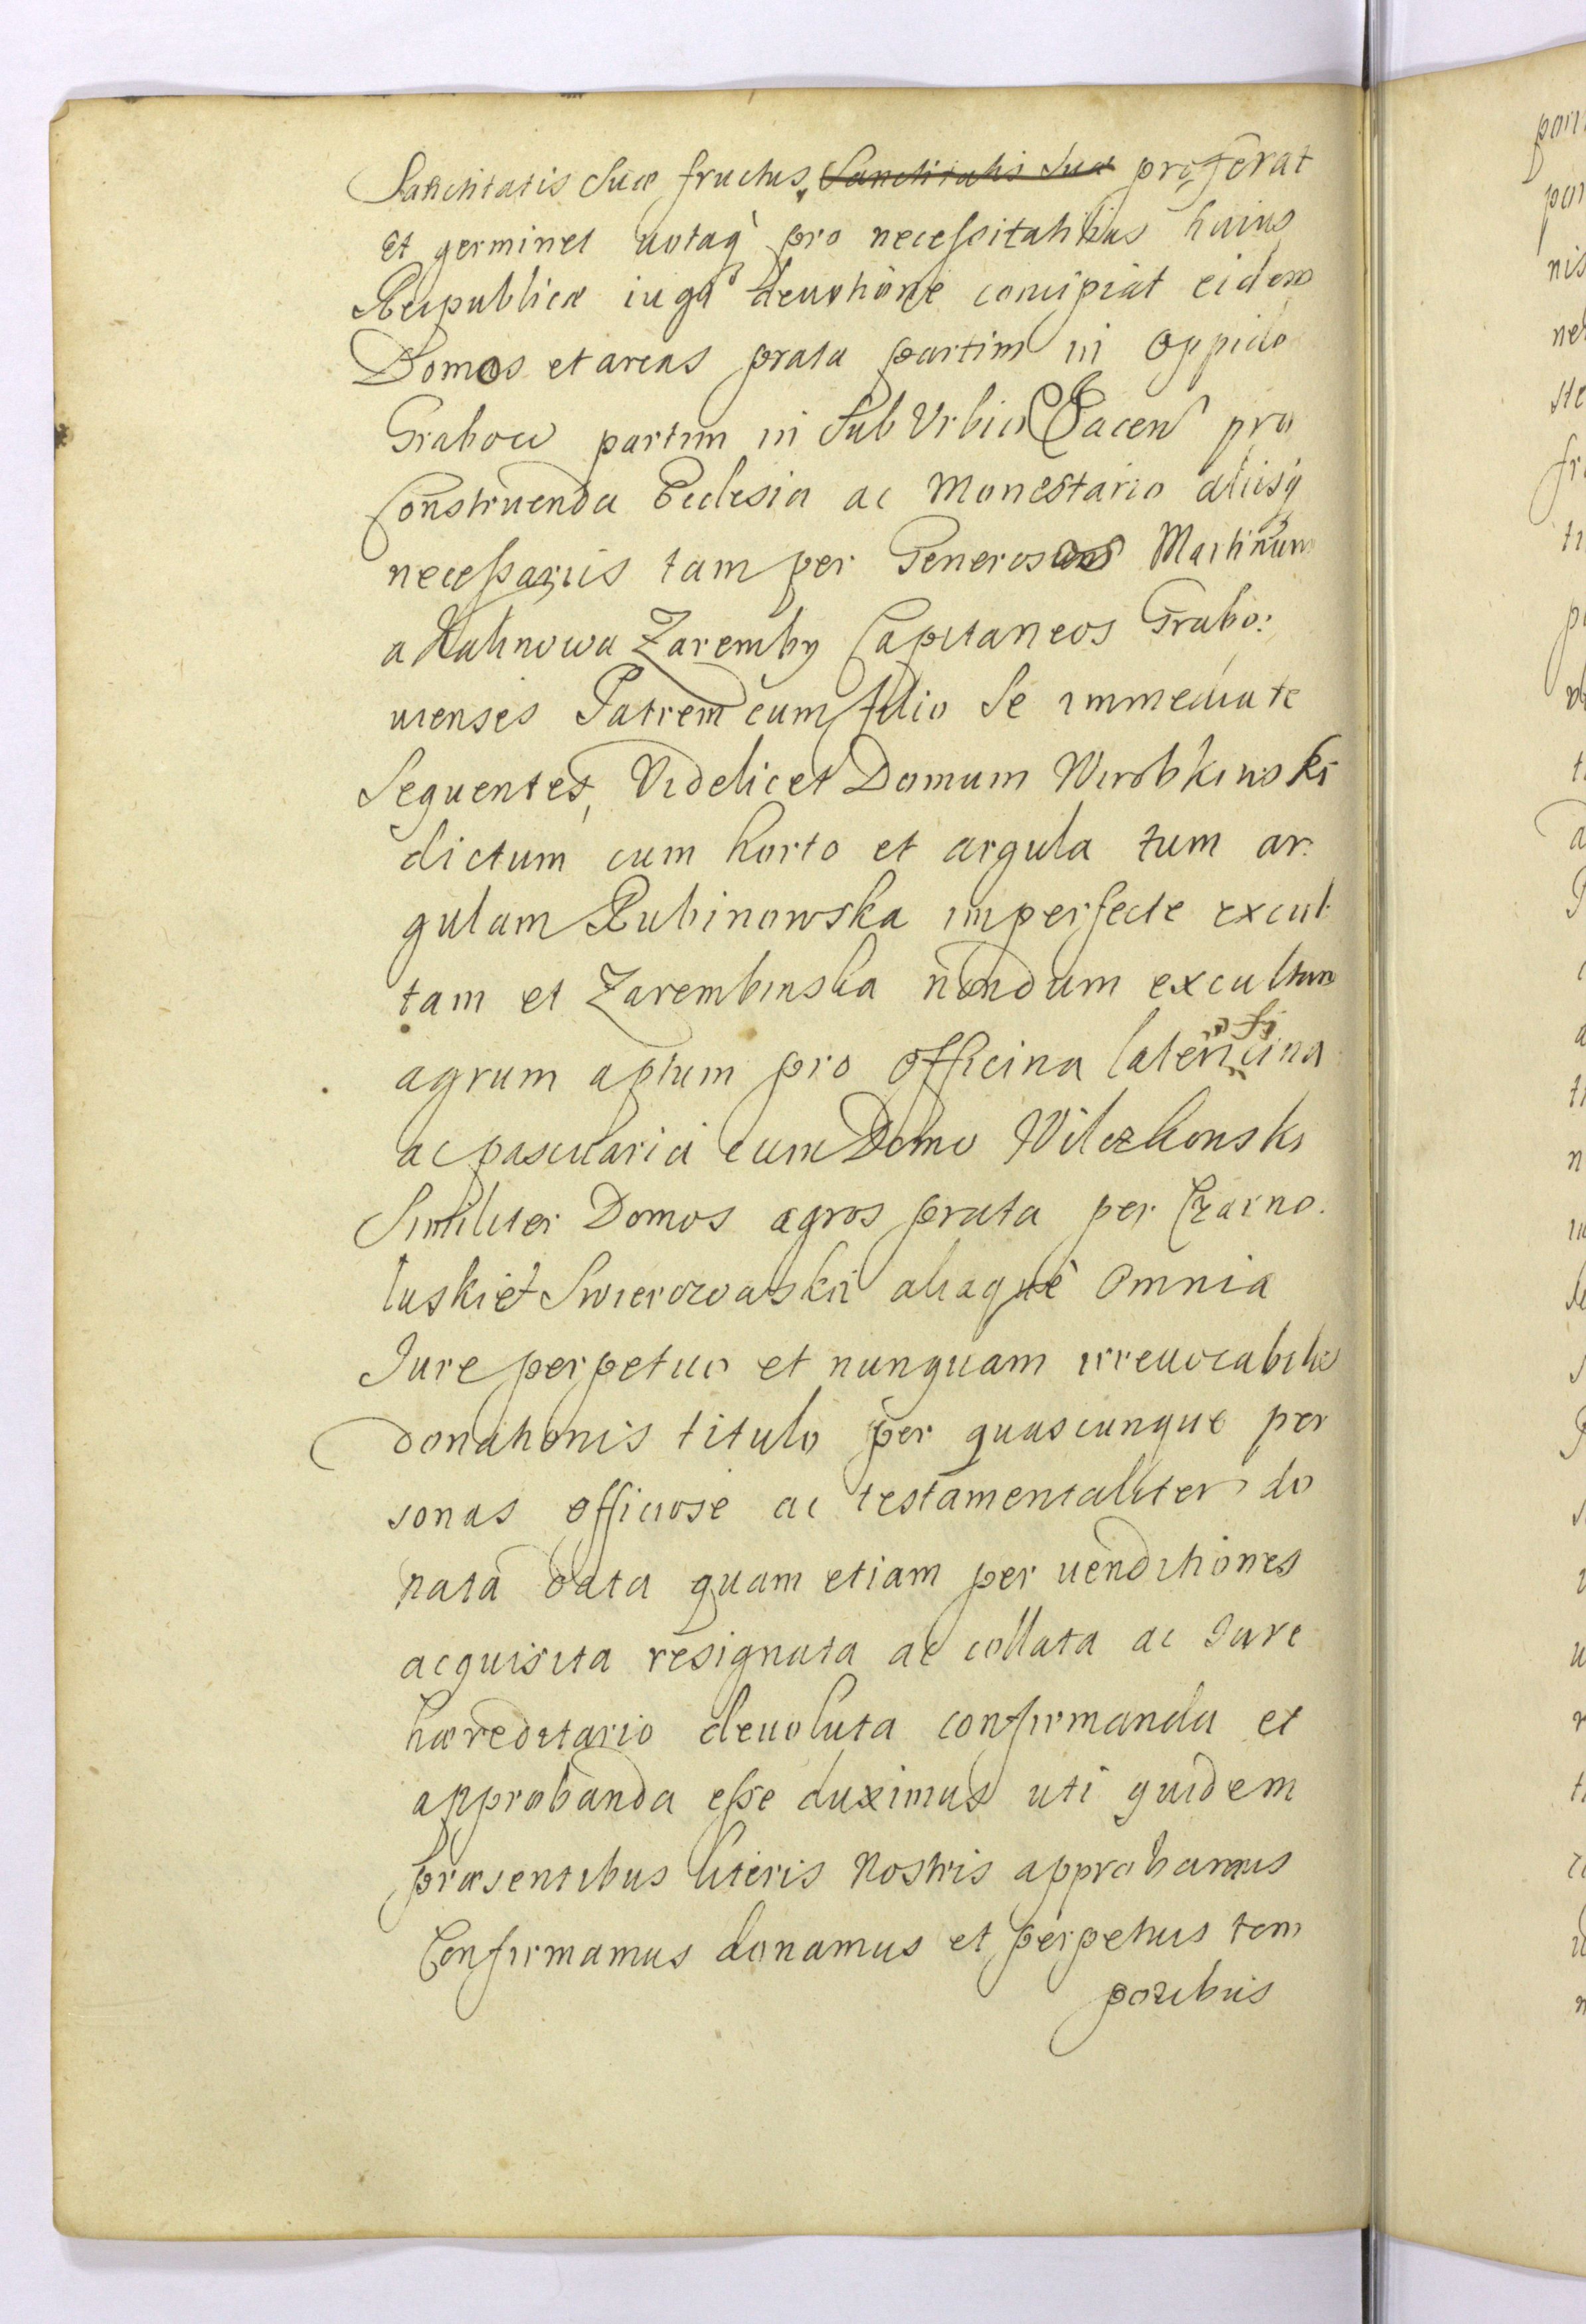 Sanctitatis Suæ fructus, Sanctitatis Suæ proferat
et germinet uotaq̀ pro necessitatibus huius
Reipublicæ iugi deuotione concipiat eidem
Domos et areas prata partim in Oppido
Grabow partim in Sub Urbio Jacen pro
Construenda Ecclesia ac Monestario aliisq̀
necessariis tam per Generosos Martinum
a Kalinowa Zaremby Capitaneos Grabo:
uienses Patrem cum filio Se immediate
Sequentes, Videlicet Domum Wirobkinski
dictum cum horto et argula tum ar:
gulam Rubinowska imperfecte excul
tam et Zarembinska nondum excultam
agrum aptum pro Officina
ac pascuaria cum Domo Wilczkonski
Similiter Domos agros prata per Czarno:
luski et aliaquè Omnia
Jure perpetuo et nunquam irreuocabili
donationis titulo per quascunque per
sonas officiose ac testamentaliter do
nata data quam etiam per uenditiones
acquisita resignata ac collata ac Jure
hæreditario deuoluta confirmanda et
approbanda esse duximus uti quidem
præsentibus literis Nostris approbamus
Confirmamus donamus et perpetuis tem
poribus